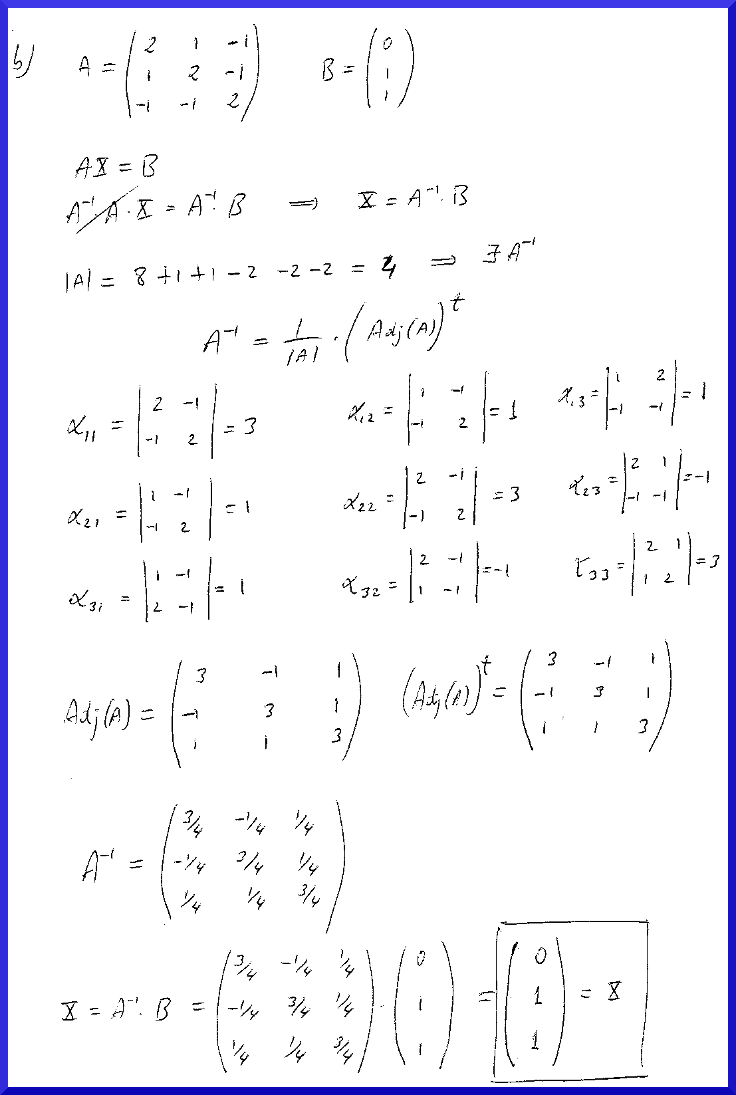 b) A = (2 1 -1; 1 2 -1; -1 -1 2) B = (0; 1; 1)
AX = B
A⁻¹·A·X = A⁻¹·B ⟹ X = A⁻¹·B
|A| = 8+1+1-2-2-2 = 4 ⟹ ∃ A⁻¹
A⁻¹ = 1/|A| · (Adj(A))ᵗ
α₁₁ = |2 -1; -1 2| = 3 α₁₂ = |1 -1; -1 2| = 1 α₁₃ = |1 2; -1 -1| = 1
α₂₁ = |1 -1; -1 2| = 1 α₂₂ = |2 -1; -1 2| = 3 α₂₃ = |2 1; -1 -1| = -1
α₃₁ = |1 -1; 2 -1| = 1 α₃₂ = |2 -1; 1 -1| = -1 α₃₃ = |2 1; 1 2| = 3
Adj(A) = (3 -1 1; -1 3 1; 1 1 3) (Adj(A))ᵗ = (3 -1 1; -1 3 1; 1 1 3)
A⁻¹ = (3/4 -1/4 1/4; -1/4 3/4 1/4; 1/4 1/4 3/4)
X = A⁻¹·B = (3/4 -1/4 1/4; -1/4 3/4 1/4; 1/4 1/4 3/4) · (0; 1; 1) = (0; 1; 1) = X